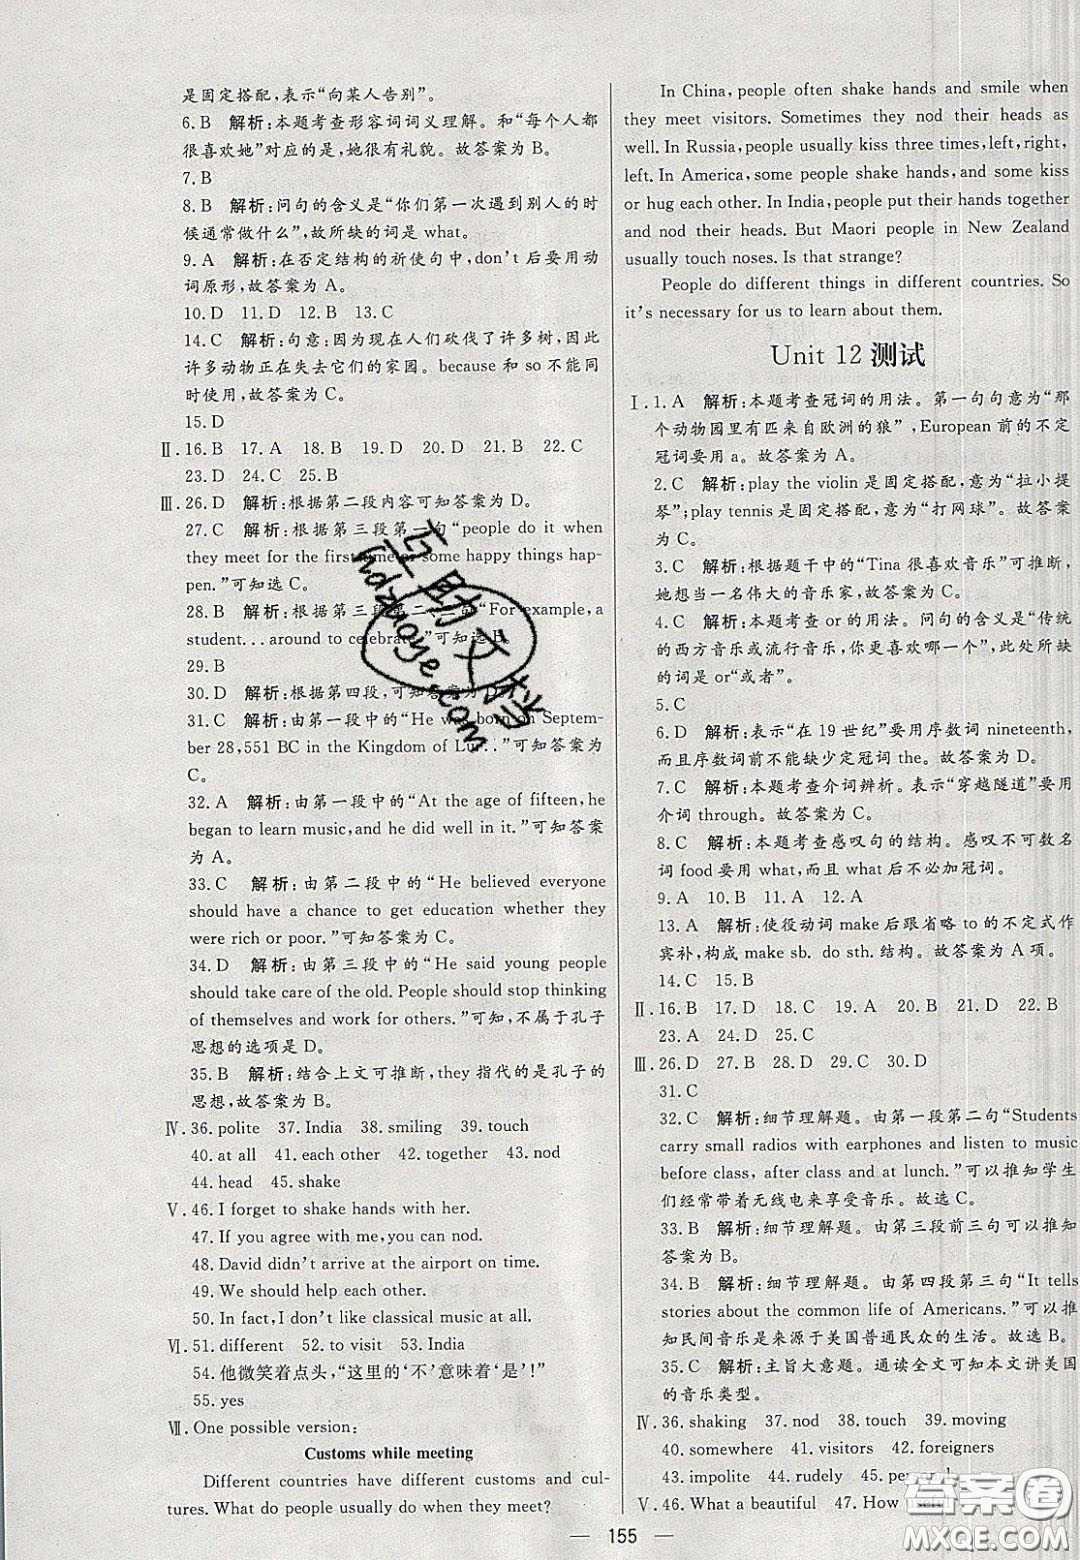 是固定搭配,表示“向某人告别”。
6. B 解析:本题考查形容词词义理解。和“每个人都
很喜欢她”对应的是,她很有礼貌。故答案为 B。
7. B
8. B 解析:问句的含义是“你们第一次遇到别人的时
候通常做什么”,故所缺的词是 what。
9. A 解析:在否定结构的祈使句中,don't 后要用动
词原形,故答案为 A。
10. D 11. D 12. B 13. C
14. C 解析:句意:因为现在人们砍伐了许多树,因此
许多动物正在失去它们的家园。because 和 so 不能同
时使用,故答案为 C。
15. D
Ⅱ. 16. B 17. A 18. B 19. D 20. D 21. B 22. C
23. D 24. C 25. B
Ⅲ. 26. D 解析:根据第二段内容可知答案为 D。
27. C 解析:根据第三段第一句“people do it when
they meet for the first time or some happy things hap-
pen.”可知选 C。
28. B 解析:根据第三段第二、三句“For example, a
student... around to celebrate.”可知选 B。
29. B
30. D 解析:根据第四段,可知答案为 D。
31. C 解析:由第一段中的“He was born on Septem-
ber 28,551 BC in the Kingdom of Lu...”可知答案为
C。
32. A 解析:由第一段中的“At the age of fifteen, he
began to learn music, and he did well in it.”可知答案
为 A。
33. C 解析:由第二段中的“He believed everyone
should have a chance to get education whether they
were rich or poor.”可知答案为 C。
34. D 解析:由第三段中的“He said young people
should take care of the old. People should stop thinking
of themselves and work for others.”可知,不属于孔子
思想的选项是 D。
35. B 解析:结合上文可推断,they 指代的是孔子的
思想,故答案为 B。
Ⅳ. 36. polite 37. India 38. smiling 39. touch
40. at all 41. each other 42. together 43. nod
44. head 45. shake
Ⅴ. 46. I forget to shake hands with her.
47. If you agree with me, you can nod.
48. David didn't arrive at the airport on time.
49. We should help each other.
50. In fact, I don't like classical music at all.
Ⅵ. 51. different 52. to visit 53. India
54. 他微笑着点头,“这里的‘不’意味着‘是’!”
55. yes
Ⅶ. One possible version:
Customs while meeting
Different countries have different customs and cul-
tures. What do people usually do when they meet?
In China, people often shake hands and smile when
they meet visitors. Sometimes they nod their heads as
well. In Russia, people usually kiss three times, left, right,
left. In America, some people shake hands, and some kiss
or hug each other. In India, people put their hands together
and nod their heads. But Maori people in New Zealand
usually touch noses. Is that strange?
People do different things in different countries. So
it's necessary for us to learn about them.
Unit 12 测试
Ⅰ. 1. A 解析:本题考查冠词的用法。第一句句意为“那
个动物园里有匹来自欧洲的狼”,European 前的不定
冠词要用 a。故答案为 A。
2. C 解析:play the violin 是固定搭配,意为“拉小提
琴”;play tennis 是固定搭配,意为“打网球”。故答案
为 C。
3. C 解析:根据题干中的“Tina 很喜欢音乐”可推断,
她想当一名伟大的音乐家,故答案为 C。
4. C 解析:本题考查 or 的用法。问句的含义是“传统
的西方音乐或流行音乐,你更喜欢哪一个”,此处所缺
的词是 or“或者”。
5. C
6. D 解析:表示“在 19 世纪”要用序数词 nineteenth,
而且序数词前不能缺少定冠词 the。故答案为 D。
7. C 解析:本题考查介词辨析。表示“穿越隧道”要用
介词 through。故答案为 C。
8. C 解析:本题考查感叹句的结构。感叹不可数名
词 food 要用 what,而且 what 后不必加冠词。
9. A 10. B 11. A 12. A
13. A 解析:使役动词 make 后跟省略 to 的不定式作
宾补,构成 make sb. do sth. 结构。故答案为 A 项。
14. C 15. B
Ⅱ. 16. B 17. D 18. C 19. A 20. B 21. D 22. B
23. A 24. D 25. C
Ⅲ. 26. D 27. B 28. D 29. C 30. D
31. C
32. C 解析:细节理解题。由第一段第二句“Students
carry small radios with earphones and listen to music
before class, after class and at lunch.”可以推知学生
们经常带着无线电来享受音乐。故选 C。
33. B 解析:细节理解题。由第三段前三句可以推知
答案为 B。
34. B 解析:细节理解题。由第四段第三句“It tells
stories about the common life of Americans.”可以推
知民间音乐是来源于美国普通民众的生活。故选 B。
35. C 解析:主旨大意题。通读全文可知本文讲美国
的音乐类型。
Ⅳ. 36. shaking 37. nod 38. touch 39. moving
40. somewhere 41. visitors 42. foreigners
43. impolite 44. rudely 45.
Ⅴ. 46. What a beautiful 47. How
155
互助文档
hdzuoye.com
答案圈
MXQE.COM